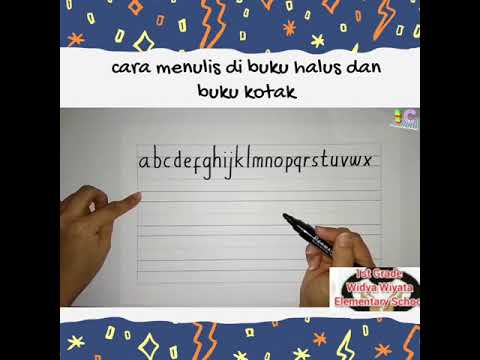 cara menulis di buku halus dan
buku kotak
abcdefghijklmnopqrstuvwx
1st Grade
Widya Wiyata
Elementary School